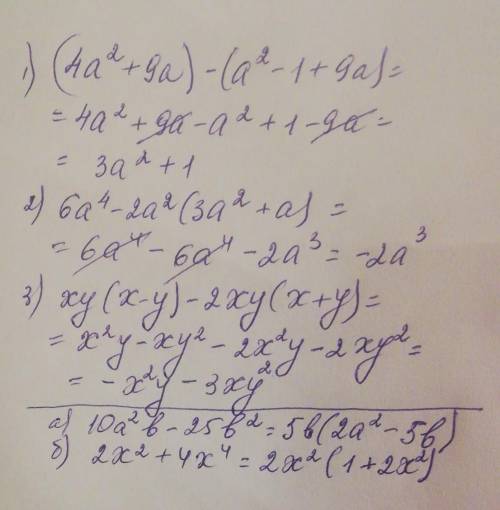 1) (4a² + 9a) - (a² - 1 + 9a) =
= 4a² + 9a - a² + 1 - 9a =
= 3a² + 1
2) 6a⁴ - 2a² (3a² + a) =
= 6a⁴ - 6a⁴ - 2a³ = -2a³
3) xy (x-y) - 2xy (x+y) =
= x²y - xy² - 2x²y - 2xy² =
= - x²y - 3xy²
а) 10a²b - 25b² = 5b (2a² - 5b)
б) 2x² + 4x⁴ = 2x² (1 + 2x²)